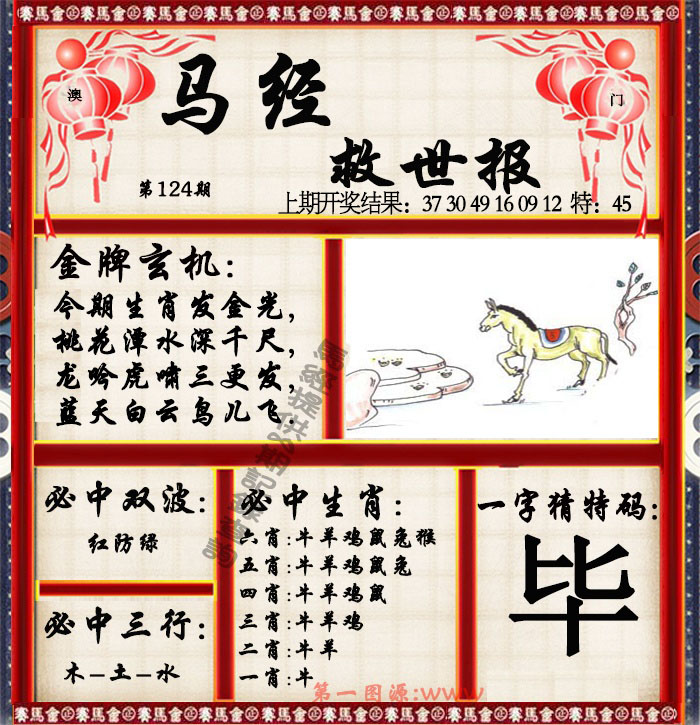 賽馬會 賽馬會 賽馬會 賽馬會 賽馬會 賽馬會 賽馬會 賽馬會 賽馬會
澳
门
马经
救世报
第124期
上期开奖结果：37 30 49 16 09 12 特：45
金牌玄机：
今期生肖发金光，
桃花潭水深千尺，
龙吟虎啸三更发，
蓝天白云鸟儿飞.
必中双波：
红防绿
必中三行：
木–土–水
必中生肖：
六肖:牛羊鸡鼠兔猴
五肖:牛羊鸡鼠兔
四肖:牛羊鸡鼠
三肖:牛羊鸡
二肖:牛羊
一肖:牛
一字猜特码：
毕
第一图源:www